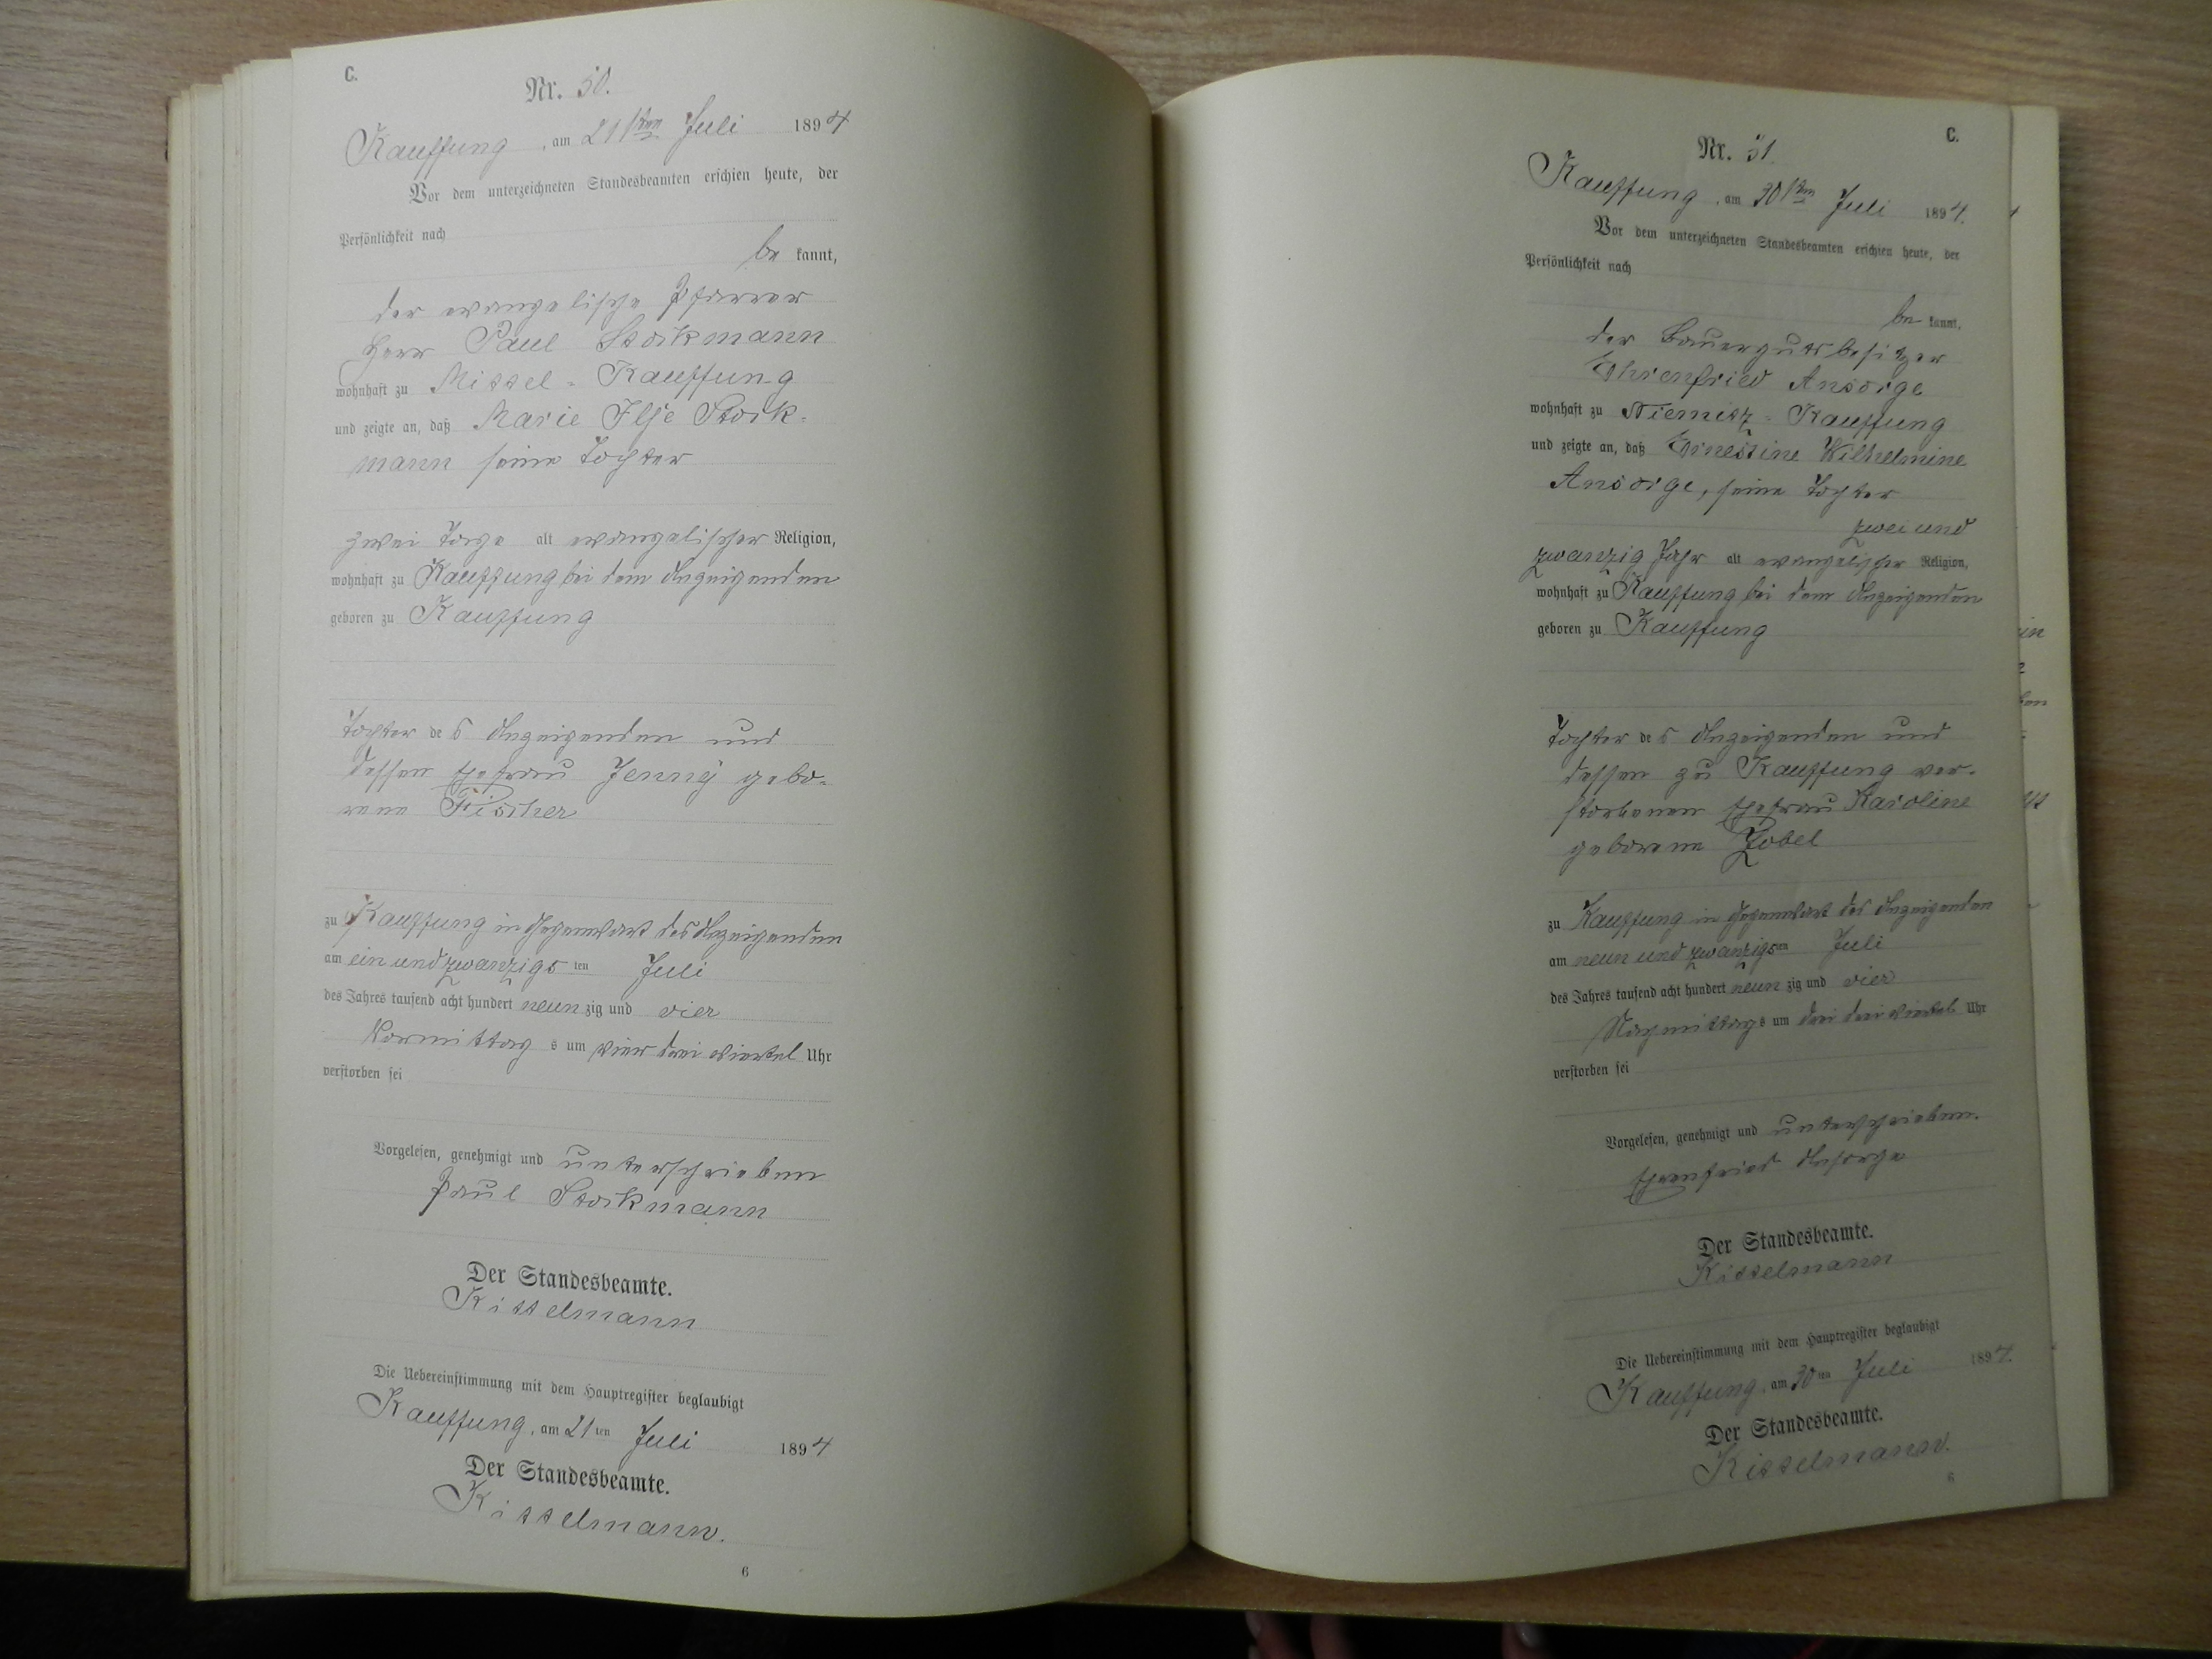 C.
Nr. 50.
Kauffung, am 21ten Juli 1894
Vor dem unterzeichneten Standesbeamten erschien heute, der
Persönlichkeit nach
be kannt,
der evangelische Pfarrer
Herr Paul Stockmann
wohnhaft zu Mittel-Kauffung
und zeigte an, daß Marie Ilse Stock-
mann seine Tochter
zwei Tage alt evangelischer Religion,
wohnhaft zu Kauffung bei dem Anzeigenden
geboren zu Kauffung
Tochter des Anzeigenden und
dessen Ehefrau Jenny gebo-
rene Fischer
zu Kauffung in Gegenwart des Anzeigenden
am ein und zwanzigsten Juli
des Jahres tausend acht hundert neunzig und vier
Vormittags um vier drei viertel Uhr
verstorben sei
Vorgelesen, genehmigt und unterschrieben
Paul Stockmann
Der Standesbeamte.
Kittelmann
Die Uebereinstimmung mit dem Hauptregister beglaubigt
Kauffung, am 21ten Juli 1894
Der Standesbeamte.
Kittelmann.
6
C.
Nr. 51.
Kauffung, am 30ten Juli 1894.
Vor dem unterzeichneten Standesbeamten erschien heute, der
Persönlichkeit nach
be kannt,
der Bauergutsbesitzer
Ehrenfried Ansorge
wohnhaft zu Niemitz-Kauffung
und zeigte an, daß Ernestine Wilhelmine
Ansorge, seine Tochter
zwei und
zwanzig Jahr alt evangelischer Religion,
wohnhaft zu Kauffung bei dem Anzeigenden
geboren zu Kauffung
Tochter des Anzeigenden und
dessen zu Kauffung ver-
storbenen Ehefrau Karoline
geborene Zobel
zu Kauffung in Gegenwart des Anzeigenden
am neun und zwanzigsten Juli
des Jahres tausend acht hundert neunzig und vier
Nachmittags um drei drei viertel Uhr
verstorben sei
Vorgelesen, genehmigt und unterschrieben.
Ehrenfried Ansorge
Der Standesbeamte.
Kittelmann
Die Uebereinstimmung mit dem Hauptregister beglaubigt
Kauffung, am 30ten Juli 1894.
Der Standesbeamte.
Kittelmann.
6